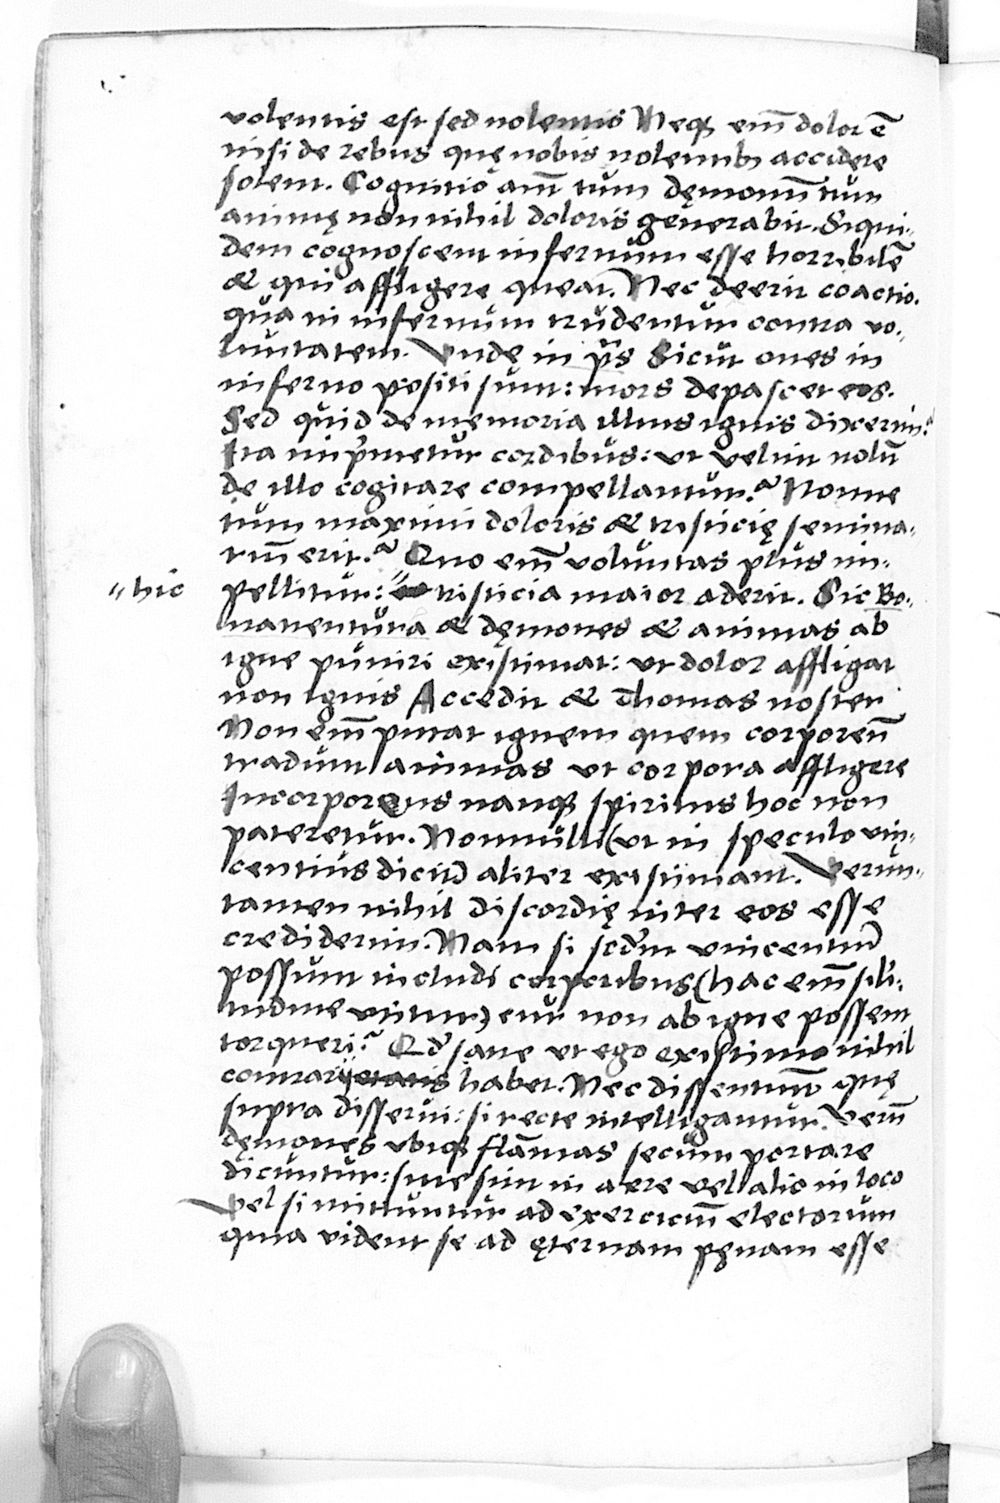 volentis est sed nolentis Neqꝫ em̄ dolor ē
nisi de rebus quę nobis nolentibꝫ accidere
solent. Cognitio aūt tum dęmonū tum
animę non nihil doloris generabit. Siqui-
dem cognoscent infernum esse horribilē
& qui affligere queat. Nec deerit coactio.
qua in infernum trudentur contra vo-
luntatem. Vnde in pˢ̄ Sicut oues in
inferno positi sunt: mors depascet eos.
Sed quid de memoria illius ignis dixerim?
Ita imp̄metur cordibus: vt velint nolīt
de illo cogitare compellantur? Nonne
tum maximi doloris & tristicię semina-
riū erit? Quo em̄ voluntas plus im-
" hic
pellitur: " tristicia maior aderit. Sic Bo-
nauentura & dęmones & animas ab
igne puniri existimat: vt dolor affligat
non ignis Accedit & Thomas noster
Non em̄ putat ignem quem corporeū
tradunt animas vt corpora affligere
Incorporeus nanqꝫ spiritus hoc non
pateretur. Nonnulli (vt in speculo vin-
centius dicit) aliter existimant. Verun-
tamen nihil discordię inter eos esse
crediderim. Nam si scd̄m vincentiū
possunt includi corporibus (hac em̄ sīli-
tudine vtitur) cur non ab igne possent
torqueri? Qd̄ sane vt ego existimo nihil
contrarietatis habet. Nec dissentiunt quę
supra disserui: si recte intelligantur. Verū
dęmones vbiqꝫ flāmas secum portare
dicuntur: siue sint in aere vel alio in loco
Vel si mittuntur ad exerciciū electorum
quia vident se ad ęternam pęnam esse